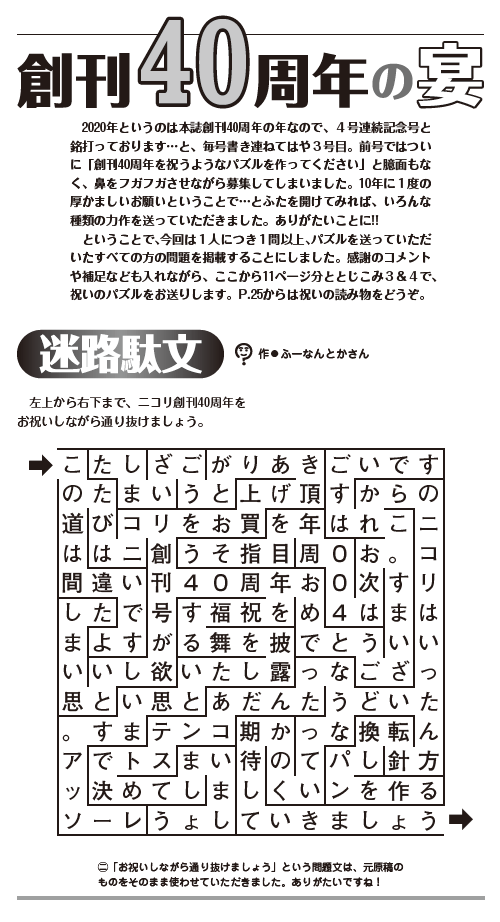 創刊40周年の宴
2020年というのは本誌創刊40周年の年なので、４号連続記念号と
銘打っております…と、毎号書き連ねてはや３号目。前号ではつい
に「創刊40周年を祝うようなパズルを作ってください」と臆面もな
く、鼻をフガフガさせながら募集してしまいました。10年に１度の
厚かましいお願いということで…とふたを開けてみれば、いろんな
種類の力作を送っていただきました。ありがたいことに!!
ということで、今回は１人につき１問以上、パズルを送っていただ
いたすべての方の問題を掲載することにしました。感謝のコメント
や補足なども入れながら、ここから11ページ分ととじこみ３＆４で、
祝いのパズルをお送りします。P.25からは祝いの読み物をどうぞ。
迷路駄文
作●ふーなんとかさん
左上から右下まで、ニコリ創刊40周年を
お祝いしながら通り抜けましょう。
こたしざごがりあきごいです
のたまいうと上げ頂すからの
道びコリをお買を年はれこニ
ははニ創うそ指目周０お。コ
間違い刊４０周年お０次すリ
したで号す福祝をめ４はまは
まよすがる舞を披でとういい
いいし欲いたし露っなござっ
思とい思とあだんたうどいた
。すまテンコ期かっな換転ん
アでトスまい待のてパし針方
ッ決めてしましくいンを作る
ソーレうょしていきましょう
㊁「お祝いしながら通り抜けましょう」という問題文は、元原稿の
ものをそのまま使わせていただきました。ありがたいですね！